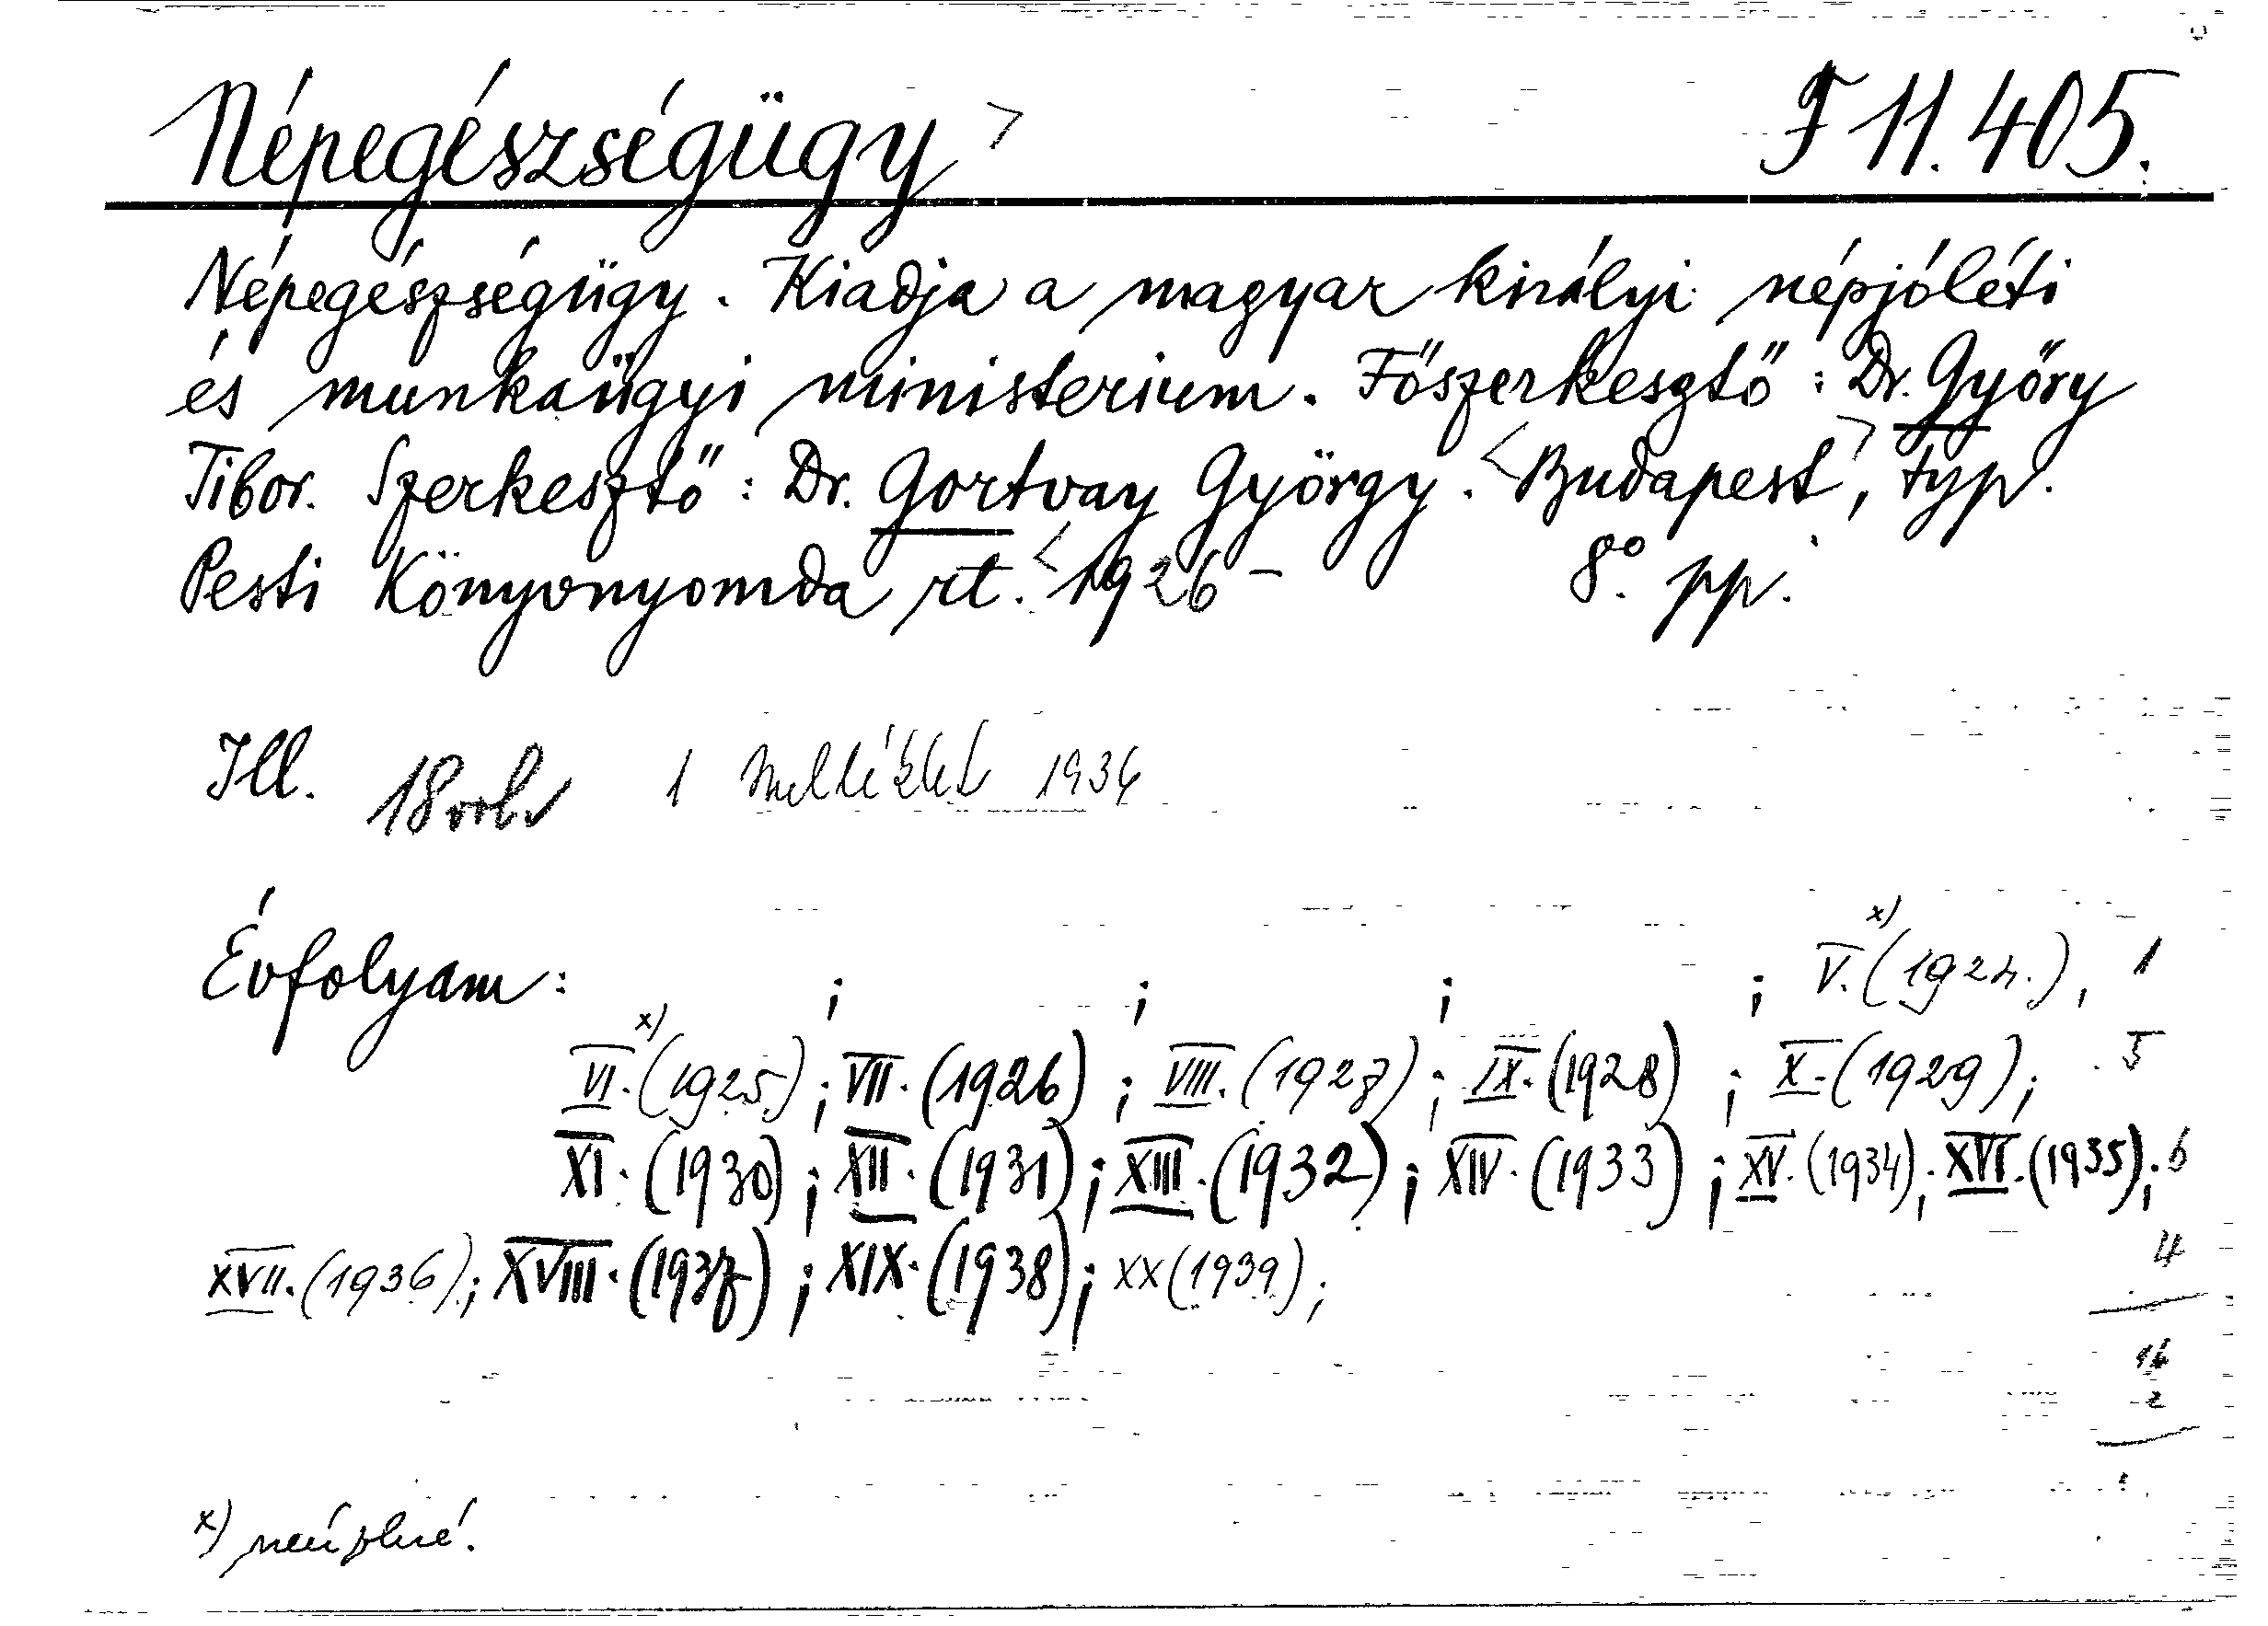 Népegészségügy > F 11.405.
Népegészségügy. Kiadja a magyar királyi népjóléti
és munkaügyi ministerium. Főszerkesztő: Dr. Győry
Tibor. Szerkesztő: Dr. Gortvay György. <Budapest>, typ.
Pesti Könyvnyomda rt. <1926- 8°. pp.
Ill. 18 vol. 1 melléklet 1936
Évfolyam: ; ; ; ; x) V. (1924.), 1
x) VI. (1925.); VII. (1926); VIII. (1927); IX. (1928); X. (1929); 5
XI. (1930); XII. (1931); XIII. (1932); XIV. (1933); XV. (1934); XVI. (1935); 6
XVII. (1936); XVIII. (1937); XIX. (1938); XX (1939); 4
16
2
x) neúplné.